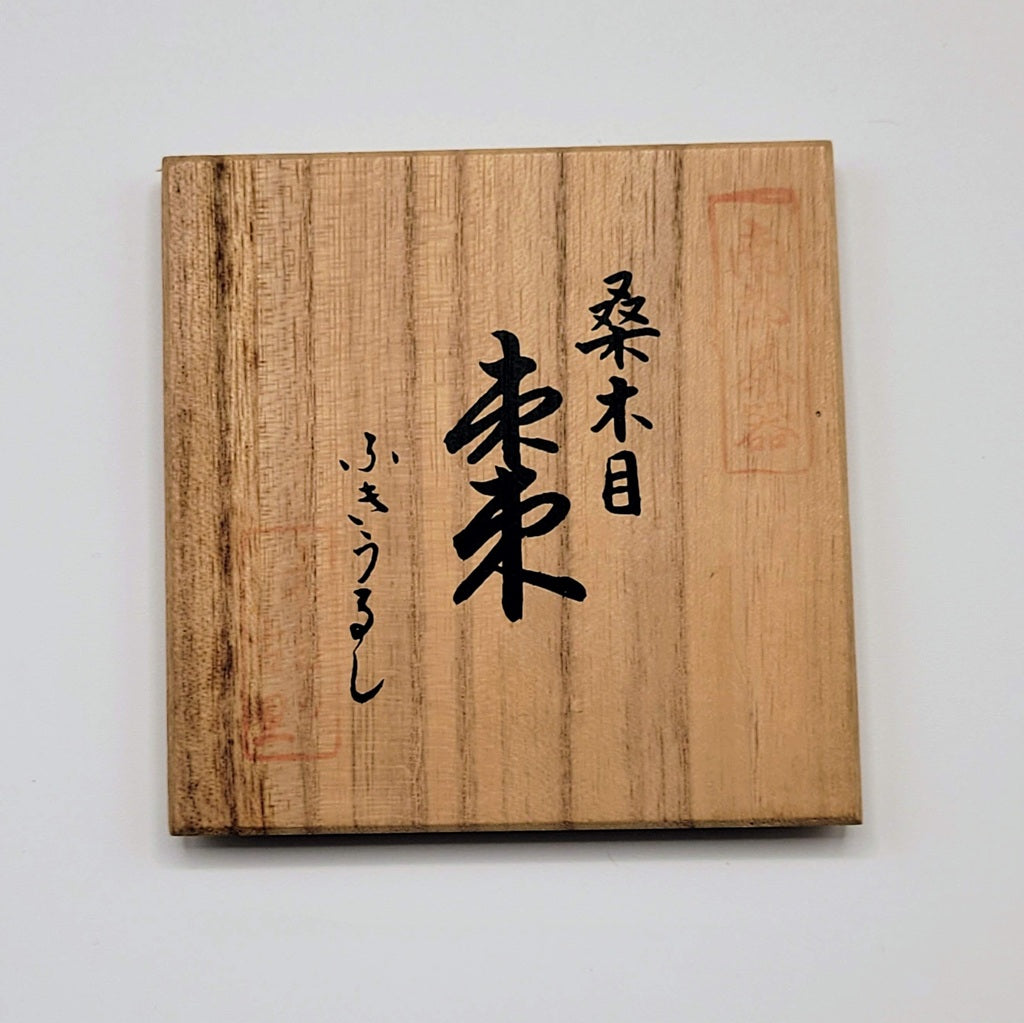 桑木目
棗
ふきうるし